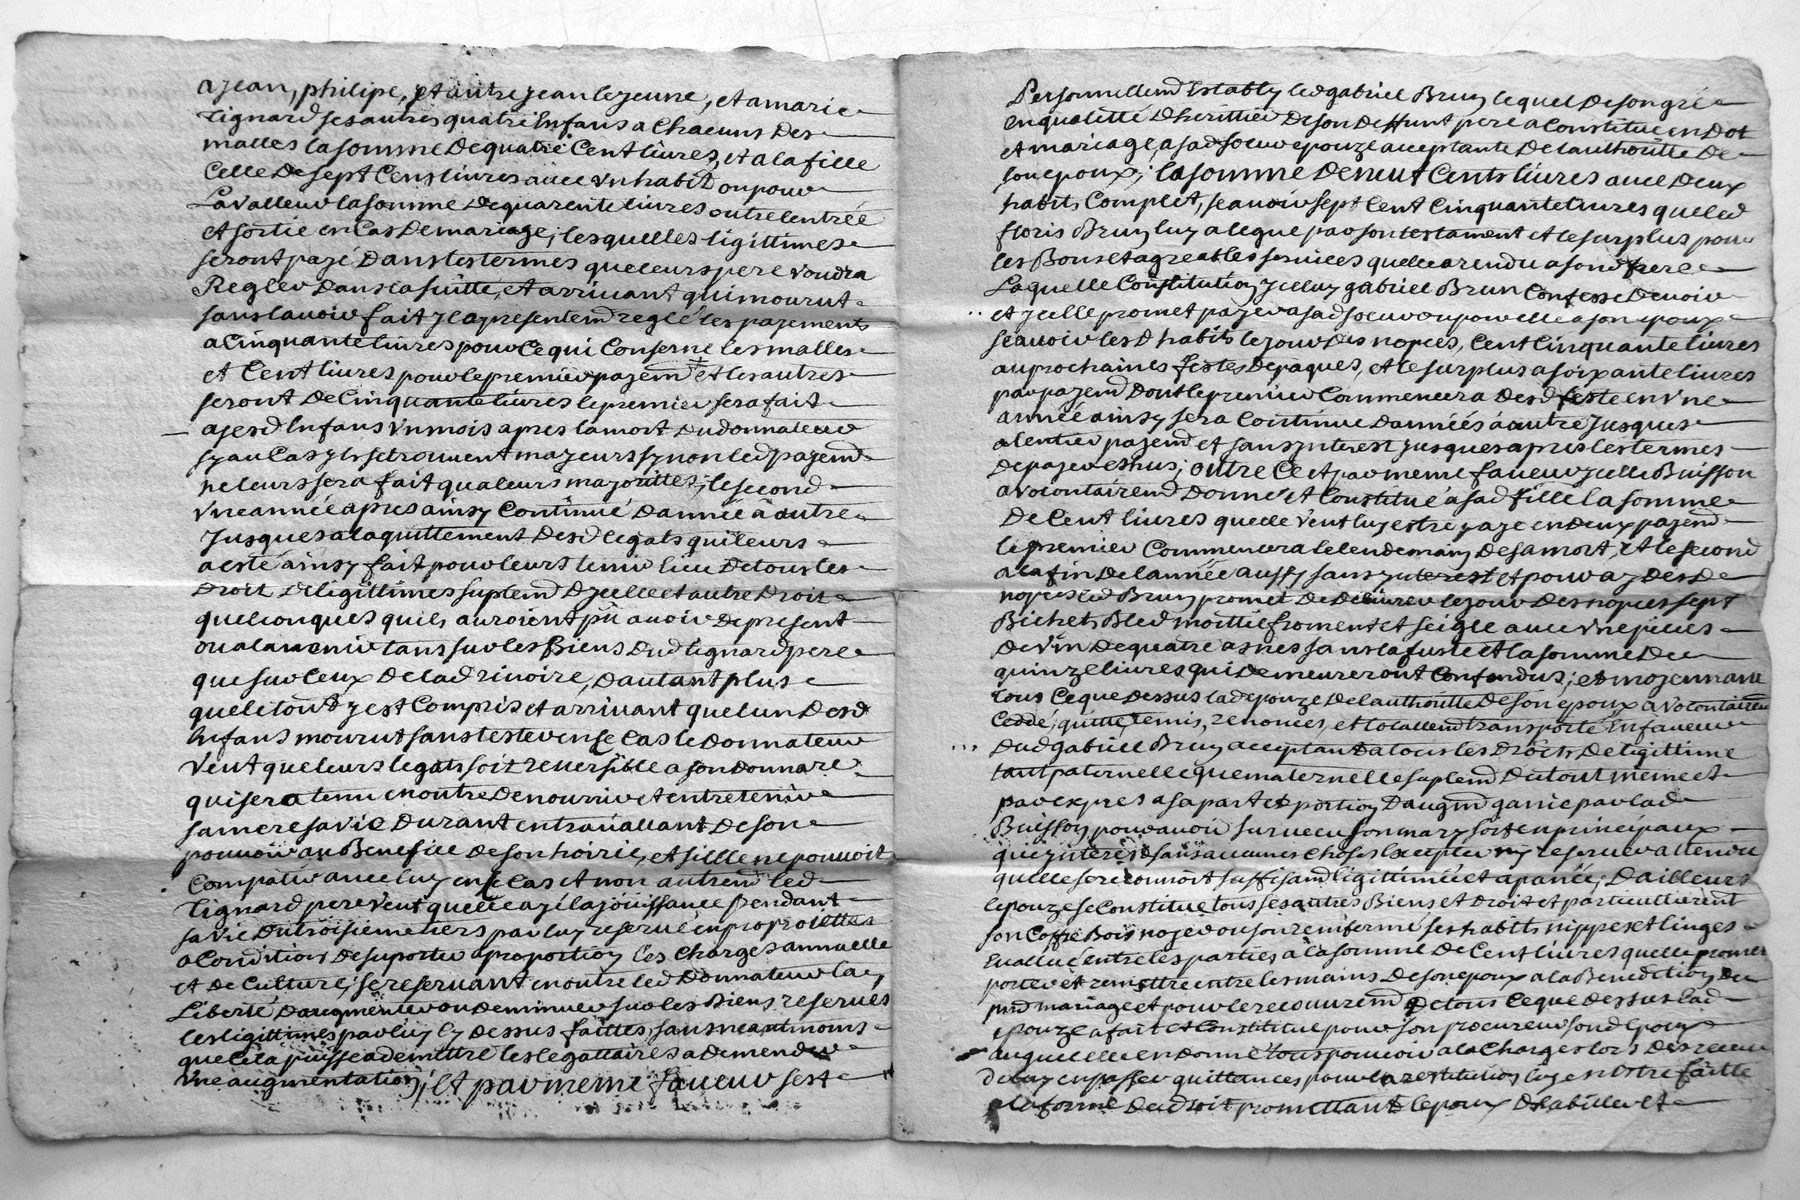 a Jean, philipe, et autre Jean le jeune, et a marie
Tignard ses autres quatre Enfans a Chacuns des
malles la somme de quatre Cent livres, et a la fille
Celle de sept Cens livres avec un habit ou pour
La valleur la somme de quarente livres outre lentrée
et sortie en Cas de mariage; lesquelles ligittimes
seront payé Dans les termes que leurs pere voudra
Regler Dans la suitte, et arrivant qui mourut
sans lavoir fait Il a presentemd reglé les payements
a Cinquante livres pour Ce qui Conserne les malles
et Cent livres pour le premier payemt et les autres
seront De Cinquante livres le premier sera fait
a jesd Enfans un mois apres la mort Dud donnateur
sy au Cas yls se trouvent majeurs sy non led payemd
ne leurs sera fait qua leurs majorittés; le second
une année apres ainsy Continué Dannée a autre
Jusques a laquittement Desd legats qui leurs
a esté ainsy fait pour leurs tenir lieu De tous les
Droit De ligittimes suplemd Dycelle et autre Droit
quelconques quils auroient pû avoir De present
ou a lavenir tant sur les Biens Dud tignard pere
que sur Ceux De lad rinoire, Dautant plus
que le tout y est Compris et arrivant que lun Desd
Enfans mourut sans tester en se Cas le Donnateur
veut que leurs legats soit reversible a son donnare
qui sera tenu en outre De nourrir et entretenir
sa mere sa vie Durant en travaillant De son
pouvoir au Benefice De son hoirie, et si elle ne pouvoit
Compatir avec luy en se Cas et non autremd led
Tignard pere veut quelle aye la jouissance pendant
sa vie Du troisieme tiers par luy reservé en proprietté
a Condition De suporter a proportion les Charges annuelle
et de Culture, se reservant en outre led Donnateur la
Liberté Daugmenter ou Deminuer sur les Biens reservés
les ligittimes par luy Cy Dessus faittes, sans neantmoins
que Cela puisse ademettre les legattaires a demender
une augmentation; Et par meme faveur sest
Personnellemd Estably led gabriel Brun lequel De son gré
en qualitté Dheritier De son Deffunt pere a Constitué en Dot
et mariage, a sad soeur epouze acceptante De lauthoritté De
son epoux, la somme De neuf Cents livres avec Deux
habits Complet, scavoir sept Cent Cinquante livres que led
floris Brun luy a legué par son testament et le surplus pour
les Bons et agreables services quelle a rendu a sond frere
Laquelle Constitution yceluy gabriel Brun Confesse Devoir
et ycelle promet payer a sad soeur ou pour elle a son epoux
scavoir lesd habits le jour Des nopces, Cent Cinquante livres
au prochaines festes De paques, et le surplus a soixante livres
par payemd Dont le premier Commencera Desd feste en une
année ainsy sera Continué Dannéés a autre Jusques
a lentier payemd et sans ynterest Jusques apres les termes
De payer eshus; outre Ce et par meme faveur ycelle Buisson
a volontairemd Donné et Constitué a sad fille la somme
De Cent livres quelle veut luy estre payé en Deux payemd
le premier Commencera le lendemain De sa mort, et le second
a la fin De lannée aussy sans ynterest et pour aydes De
nopces led Brun promet De Delivrer le jour Des nopces sept
Bichets Bled moittié froment et seigle avec une pieces
De vin De quatre asnés sans la fuste et la somme De
quinze livres qui demeureront Confondus; et moyennant
tous Ce que Dessus lad epouze De lauthoritté De son epoux a volontairem
Cedde, quitte, remis, renoncés, et totallemd transporté En faveur
Dud gabriel Brun acceptant a tous les Droits De ligittime
tant paternelle que maternelle suplemd Du tout meme et
par expres a sa part et portion Daugmd gagnié par lad
Buisson pour avoir survecu son mary soit en principaux
que ynteres sans aucunes Choses Excepter ny reserver attendu
quelle se reconnoit suffisamd ligittimée et apanée; Dailleurs
lepouze se Constitue tous ses autres Biens et Droit et particullierem
son Coffre Bois noyer ou son renfermé ses habits nippes et linges
Evallué entre les parties a la somme De Cent livres quelle promet
porter et remettre entre les mains De son epoux a la Benediction Du
pnd mariage et pour le recouvremd De tous Ce que Dessus lad
epouze a fait et Constitué pour son procureur sond Epoux
auquel elle en donne tous pouvoir a la Charge lors Des receu
De luy en passer quittances pour la restitution luy en estre faitte
a la forme Du droit promettant lepoux Dhabiller et